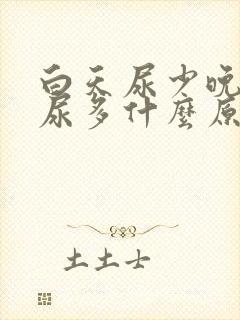 白天尿少晚
尿多什麼原
土土士